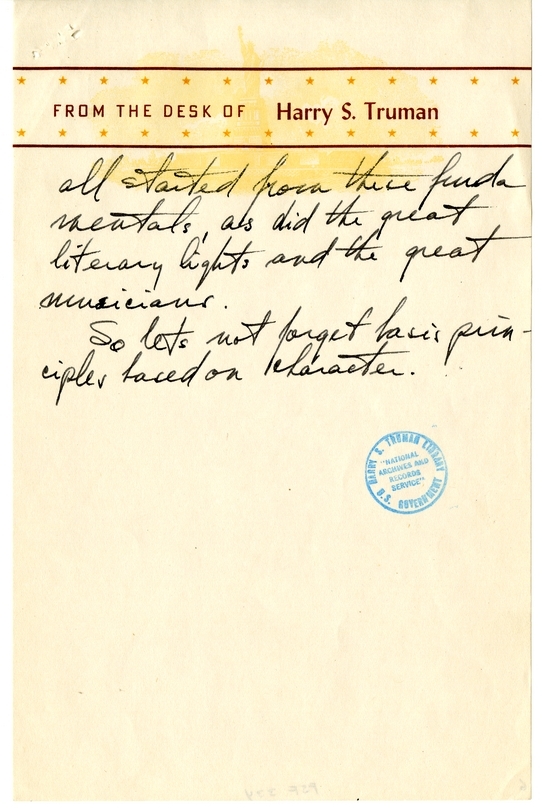 FROM THE DESK OF Harry S. Truman
all started from these funda
mentals, as did the great
literary lights and the great
musicians.
So lets not forget basic prin-
ciples based on character.
HARRY S. TRUMAN LIBRARY
"NATIONAL
ARCHIVES AND
RECORDS
SERVICE"
U.S. GOVERNMENT